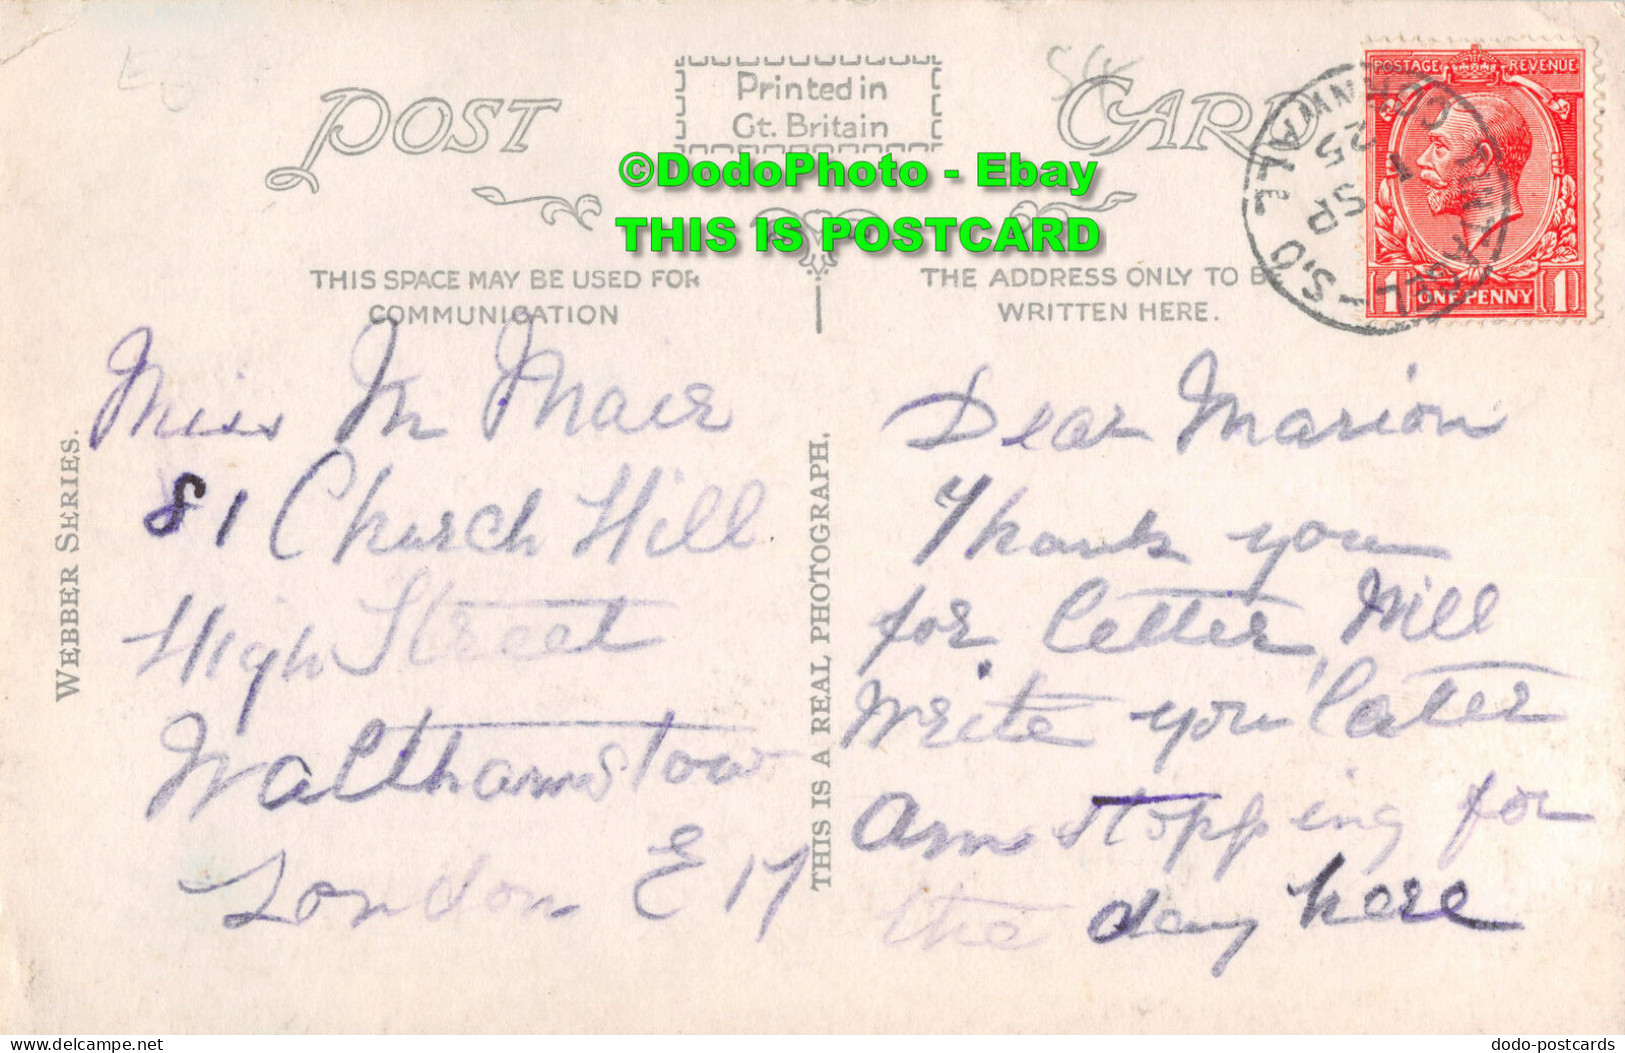 POST CARD
Printed in
Gt. Britain
©DodoPhoto - Ebay
THIS IS POSTCARD
THIS SPACE MAY BE USED FOR
COMMUNICATION
THE ADDRESS ONLY TO BE
WRITTEN HERE.
POSTAGE REVENUE
1 ONE PENNY 1
S.O. CORNWALL
1 SP
25
WEBBER SERIES.
THIS IS A REAL PHOTOGRAPH.
Miss M Mair
81 Church Hill
High Street
Walthamstow
London E 17
Dear Marion
Thank you
for letter, Will
Write you later
Am stopping for
the day here
My Web Market
dodo-postcards